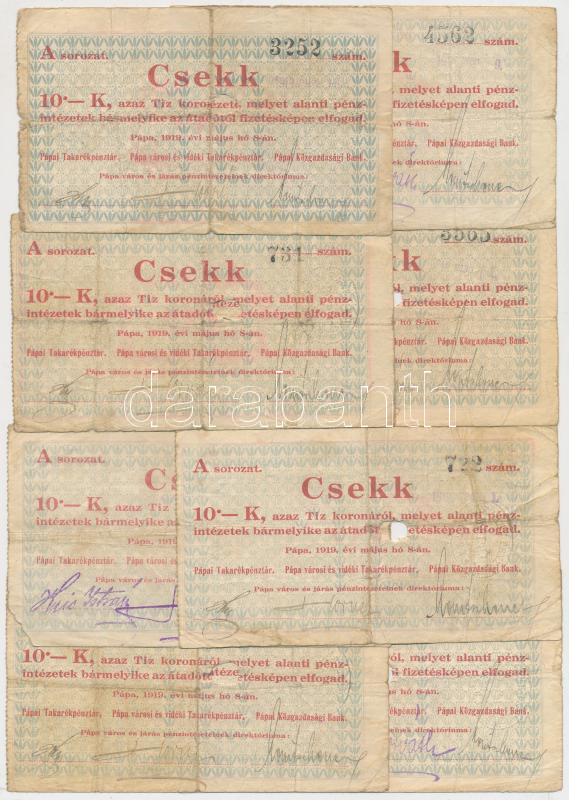 A sorozat. 3252 szám.
Csekk
10·— K, azaz Tiz koro melyet alanti pénz-
intézetek bármelyike az átadótól fizetésképen elfogad.
Pápa, 1919. évi május hó 8-án.
Pápai Takarékpénztár. Pápa városi és vidéki Takarékpénztár. Pápai Közgazdasági Bank.
Pápa város és járás pénzintézeteinek direktóriuma:
4562 szám.
k
melyet alanti pénz-
fizetésképen elfogad.
hó 8-án.
Pápai Közgazdasági Bank.
direktóriuma:
A sorozat. 731 szám.
Csekk
10·— K, azaz Tiz koronáról, melyet alanti pénz-
intézetek bármelyike az átadótól fizetésképen elfogad.
Pápa, 1919. évi május hó 8-án.
Pápai Takarékpénztár. Pápa városi és vidéki Takarékpénztár. Pápai Közgazdasági Bank.
Pápa város és járás pénzintézeteinek direktóriuma:
szám.
kk
melyet alanti pénz-
fizetésképen elfogad.
hó 8-án.
Pápai Közgazdasági Bank.
direktóriuma:
darabanth
A sorozat.
Cs
10·— K, azaz Tiz
intézetek bármelyike
Pápa, 191
Pápai Takarékpénztár. Pápa
Pápa város és járás
A sorozat. 722 szám.
Csekk
10·— K, azaz Tiz koronáról, melyet alanti pénz-
intézetek bármelyike az átadótól fizetésképen elfogad.
Pápa, 1919. évi május hó 8-án.
Pápai Takarékpénztár. Pápa városi és vidéki Takarékpénztár. Pápai Közgazdasági Bank.
Pápa város és járás pénzintézeteinek direktóriuma:
10·— K, azaz Tiz koronáról, melyet alanti pénz-
intézetek bármelyike az átadótól fizetésképen elfogad.
Pápa, 1919. évi május hó 8-án.
Pápai Takarékpénztár. Pápa városi és vidéki Takarékpénztár. Pápai Közgazdasági Bank.
Pápa város és járás pénzintézeteinek direktóriuma:
ról, melyet alanti pénz-
fizetésképen elfogad.
hó 8-án.
Pápai Közgazdasági Bank.
direktóriuma: